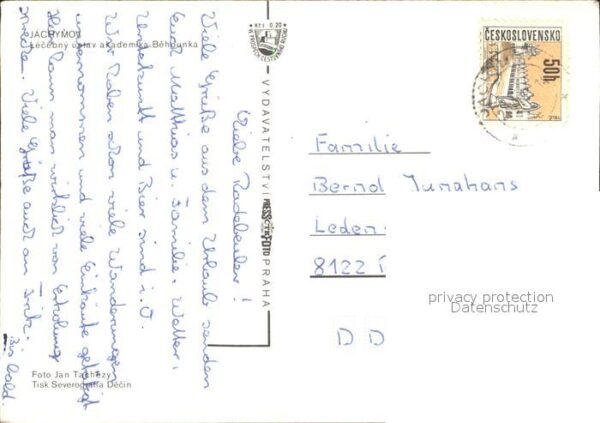 JÁCHYMOV
Léčebný ústav akademika Běhounka
Liebe Radebeuler!
Viele Grüße aus dem Urlaub senden
Euch Matthias u. Familie. Wetter,
Unterkunft und Bier sind i.O.
Wir haben schon viele Wanderungen
unternommen und viele Einkäufe getätigt.
Hier kann man wirklich von Erholung
Viele Grüße auch an
Bis bald.
Foto Jan Tachezy
Tisk Severografia Děčín
Kčs 0,20
VYDAVATELSTVÍ PRESSFOTO PRAHA
ČESKOSLOVENSKO
50h
Familie
Bernd Junghans
Leden
8122
DD
privacy protection
Datenschutz